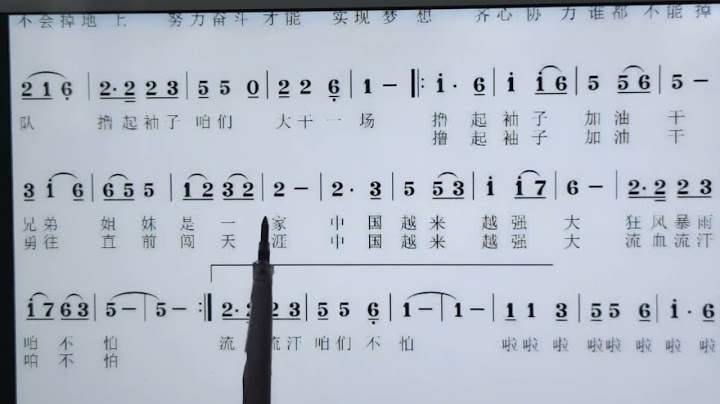 不会掉地上 努力奋斗 才能 实现梦想 齐心协力谁都不能掉
2 1 6 | 2· 2 2 3 | 5 5 0 | 2 2 6 | 1 – ‖: i · 6 | i i 6 | 5 5 6 | 5 –
队 撸起袖子咱们 大干一场 撸起袖子加油干
撸起袖子加油干
3 i 6 | 6 5 5 | 1 2 3 2 | 2 – | 2· 3 | 5 5 3 | i i 7 | 6 – | 2· 2 2 3
兄弟 姐妹是一家 中国越来越强大 狂风暴雨
勇往直前闯天涯 中国越来越强大 流血流汗
i 7 6 3 | 5 – | 5 – :‖ 2· 2 3 | 5 5 6 | 1 – | 1 – | 1 1 3 | 5 5 6 | i · 6
咱不怕 流 流汗咱们不怕 啦啦啦啦啦啦啦啦
咱不怕